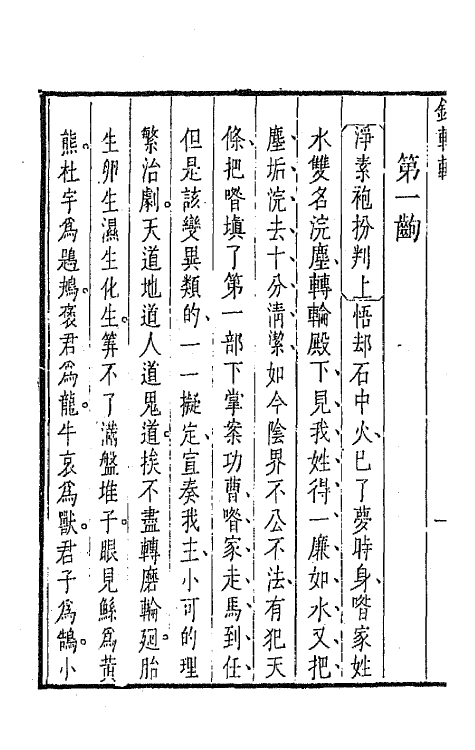 第一齣
淨素袍扮判上悟却石中火、已了夢時身、喒家姓
水雙名浣塵、轉輪殿下、見我姓得一廉如水、又把
塵垢浣去、十分清潔、如今陰界不公不法、有犯天
條、把喒填了第一部下掌案功曹、喒家走馬到任、
但是該變異類的、一一擬定、宣奏我主、小可的理
繁治劇。天道地道人道鬼道、挨不盡轉磨輪廻。胎
生卵生濕生化生。筭不了滿盤堆子。眼見鯀爲黃
熊。杜宇爲鶗鴂。褒君爲龍。牛哀爲獸。君子爲鵠。小
一